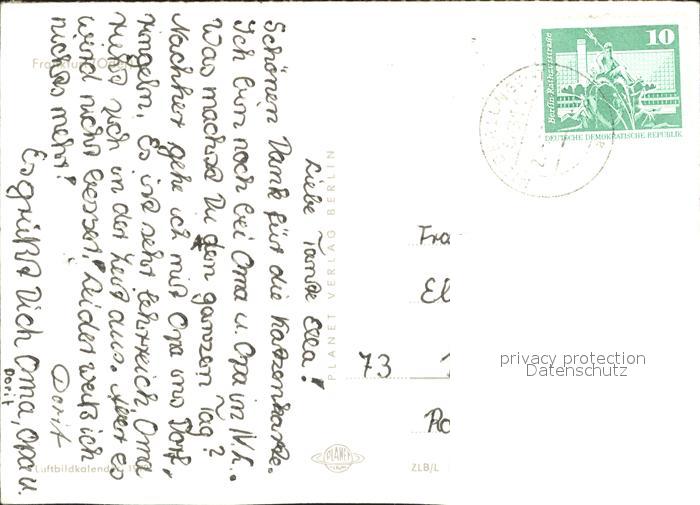 Liebe Tante Ella!
Schönen Dank für die Katzenkarte.
Ich bin noch bei Oma u. Opa in N.L..
Was machst Du den ganzen Tag?
Nachher gehe ich mit Opa ins Dorf,
Es ist sehr lehrreich Oma
sich in der Luft aus. Aber es
wird nicht besser! Leider weiß ich
nichts mehr!
Dorit
Es grüßt Dich Oma, Opa u.
Dorit
Frankfurt/Oder
Luftbildkalender 19
PLANET VERLAG BERLIN
PLANET
ZLB/L
Berlin-Rathausstraße
10
DEUTSCHE DEMOKRATISCHE REPUBLIK
Fra
El
73
Ro
privacy protection
Datenschutz